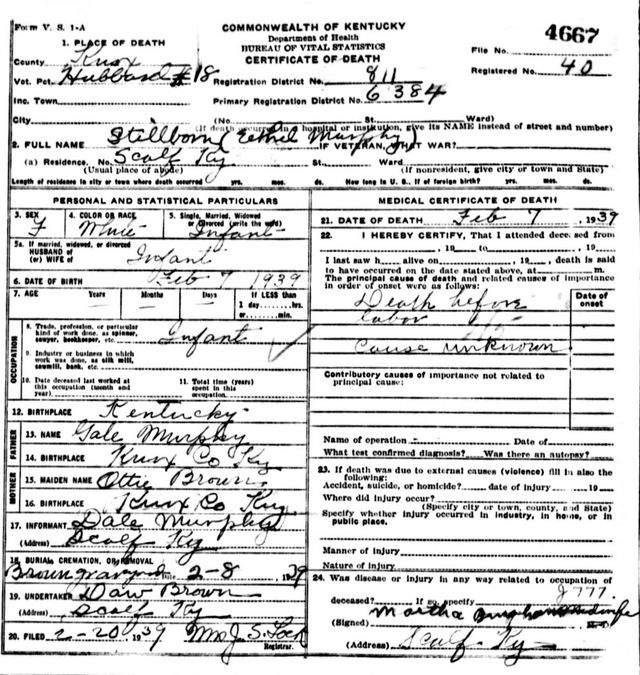 Form V. S. 1-A
COMMONWEALTH OF KENTUCKY
Department of Health
BUREAU OF VITAL STATISTICS
CERTIFICATE OF DEATH
4667
File No.
Registered No. 40
1. PLACE OF DEATH
County Knox
Vot. Pct. Hubbard #18
Registration District No. 811
Inc. Town
Primary Registration District No. 6384
City (No. St. Ward)
(If death occurred in a hospital or institution, give its NAME instead of street and number)
2. FULL NAME Stillborn (Ethel Murphy) IF VETERAN, WHAT WAR?
(a) Residence. No. Scalf Ky St. Ward
(Usual place of abode) (If nonresident, give city or town and State)
Length of residence in city or town where death occurred yrs. mos. ds. How long in U. S., if of foreign birth? yrs. mos. ds.
PERSONAL AND STATISTICAL PARTICULARS
3. SEX F
4. COLOR OR RACE White
5. Single, Married, Widowed or Divorced (write the word) Infant
5a. If married, widowed, or divorced
HUSBAND of
(or) WIFE of Infant
6. DATE OF BIRTH Feb 7 1939
7. AGE Years Months Days If LESS than
1 day, hrs.
or min.
OCCUPATION
8. Trade, profession, or particular
kind of work done, as spinner,
sawyer, bookkeeper, etc. Infant
9. Industry or business in which
work was done, as silk mill,
sawmill, bank, etc.
10. Date deceased last worked at
this occupation (month and
year)
11. Total time (years)
spent in this
occupation
12. BIRTHPLACE Kentucky
FATHER
13. NAME Gale Murphy
14. BIRTHPLACE Knox Co Ky
MOTHER
15. MAIDEN NAME Ottie Brown
16. BIRTHPLACE Knox Co Ky
17. INFORMANT Dale Murphy
(Address) Scalf Ky
18. BURIAL, CREMATION, OR REMOVAL
Brown graveyard Date 2-8 1939
19. UNDERTAKER Daw Brown
(Address) Scalf Ky
20. FILED 2-20 1939 Mrs J. S. Lock
Registrar.
MEDICAL CERTIFICATE OF DEATH
21. DATE OF DEATH Feb 7, 1939
22. I HEREBY CERTIFY, That I attended deceased from
, 19 to , 19
I last saw h alive on , 19 , death is said
to have occurred on the date stated above, at m.
The principal cause of death and related causes of importance
in order of onset were as follows:
Date of
onset
Death before
labor
cause unknown
Contributory causes of importance not related to
principal cause:
Name of operation Date of
What test confirmed diagnosis? Was there an autopsy?
23. If death was due to external causes (violence) fill in also the
following:
Accident, suicide, or homicide? date of injury 19
Where did injury occur?
(Specify city or town, county, and State)
Specify whether injury occurred in industry, in home, or in
public place.
Manner of injury
Nature of injury
24. Was disease or injury in any way related to occupation of
deceased? If so, specify 777.
(Signed) Martha midwife
(Address) Scalf Ky